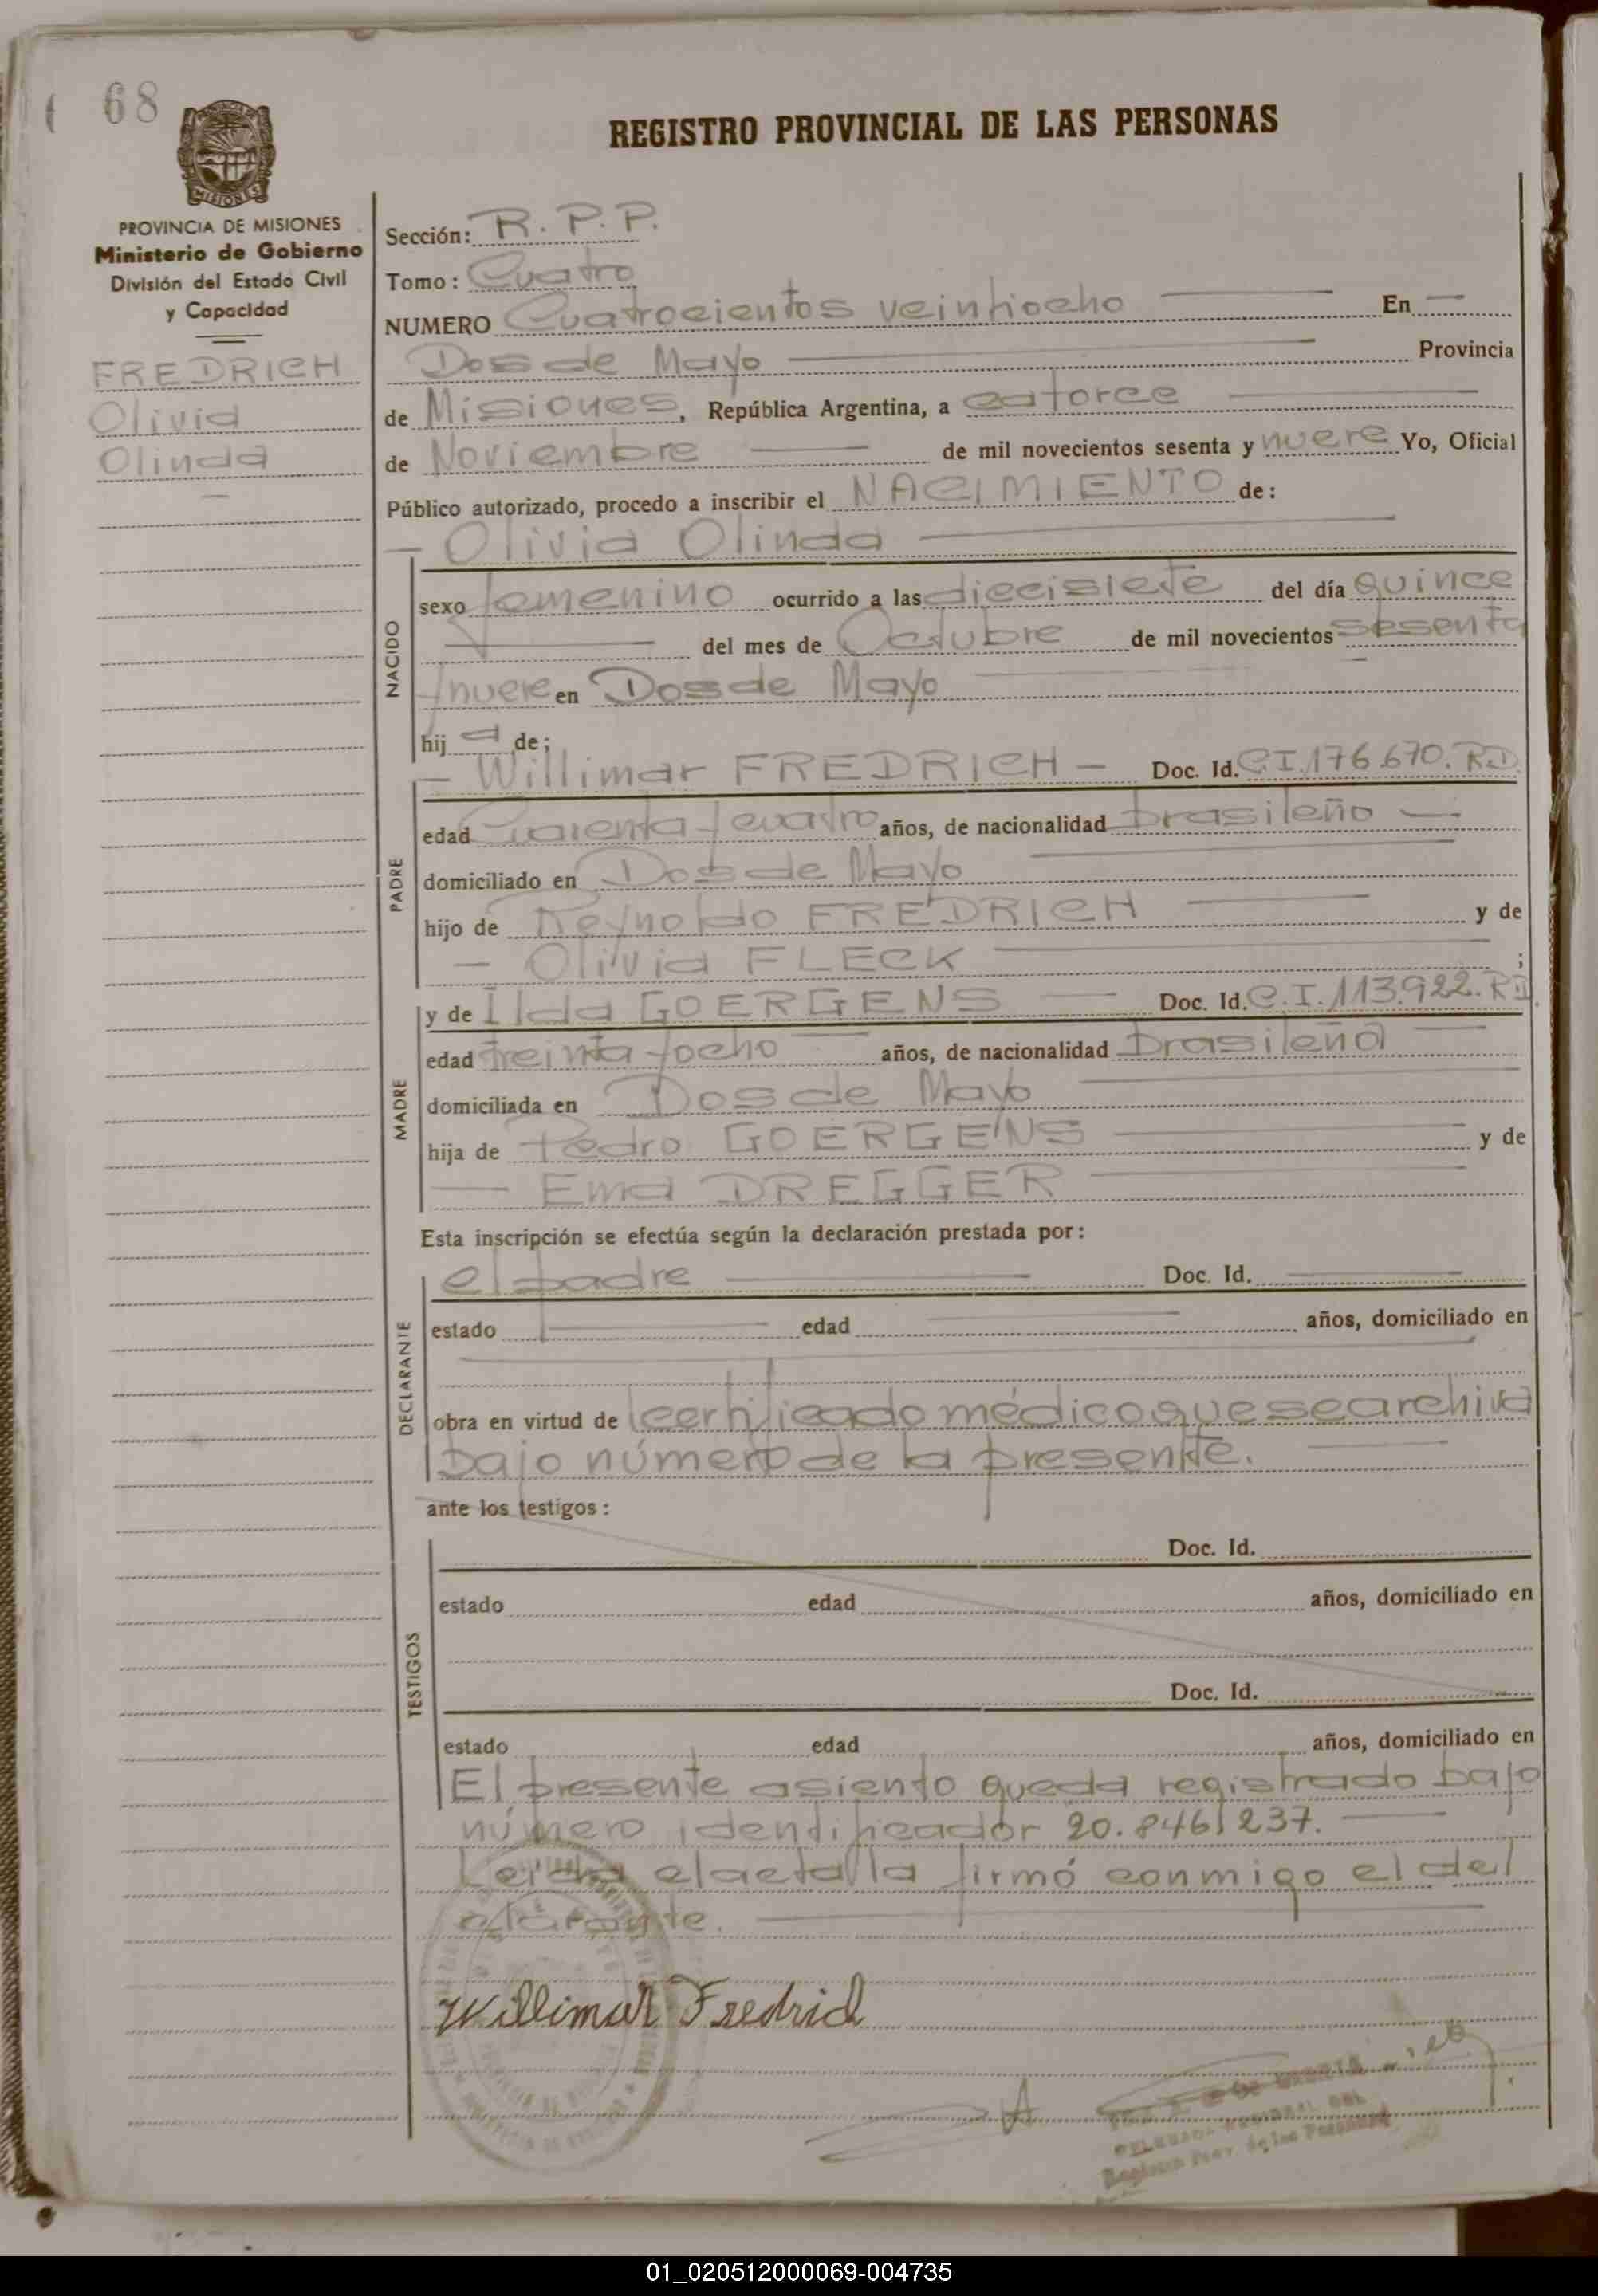 68
PROVINCIA DE MISIONES
Ministerio de Gobierno
División del Estado Civil
y Capacidad
FREDRICH
Olivia
Olinda
REGISTRO PROVINCIAL DE LAS PERSONAS
Sección: R. P. P.
Tomo: Cuatro
NUMERO Cuatrocientos veintiocho En
Dos de Mayo Provincia
de Misiones, República Argentina, a catorce
de Noviembre de mil novecientos sesenta y nueve Yo, Oficial
Público autorizado, procedo a inscribir el NACIMIENTO de:
Olivia Olinda
NACIDO
sexo femenino ocurrido a las diecisiete del día quince
del mes de Octubre de mil novecientos sesenta
y nueve en Dos de Mayo
hija de:
Willimar FREDRICH - Doc. Id. C.I. 176.670. RD.
PADRE
edad Cuarenta y cuatro años, de nacionalidad brasileño
domiciliado en Dos de Mayo
hijo de Reynoldo FREDRICH y de
Olivia FLECK ;
y de Ilda GOERGENS Doc. Id. C.I. 113.922. RD.
MADRE
edad treinta y ocho años, de nacionalidad brasileña
domiciliada en Dos de Mayo
hija de Pedro GOERGENS y de
Ema DREGGER
Esta inscripción se efectúa según la declaración prestada por:
el padre Doc. Id.
DECLARANTE
estado edad años, domiciliado en
obra en virtud de certificado médico que se archiva
bajo número de la presente.
ante los testigos:
TESTIGOS
Doc. Id.
estado edad años, domiciliado en
Doc. Id.
estado edad años, domiciliado en
El presente asiento queda registrado bajo
número identificador 20.846.237.
Leída el acta la firmó conmigo el del
clarante.
Willimar Fredrich
01_020512000069-004735